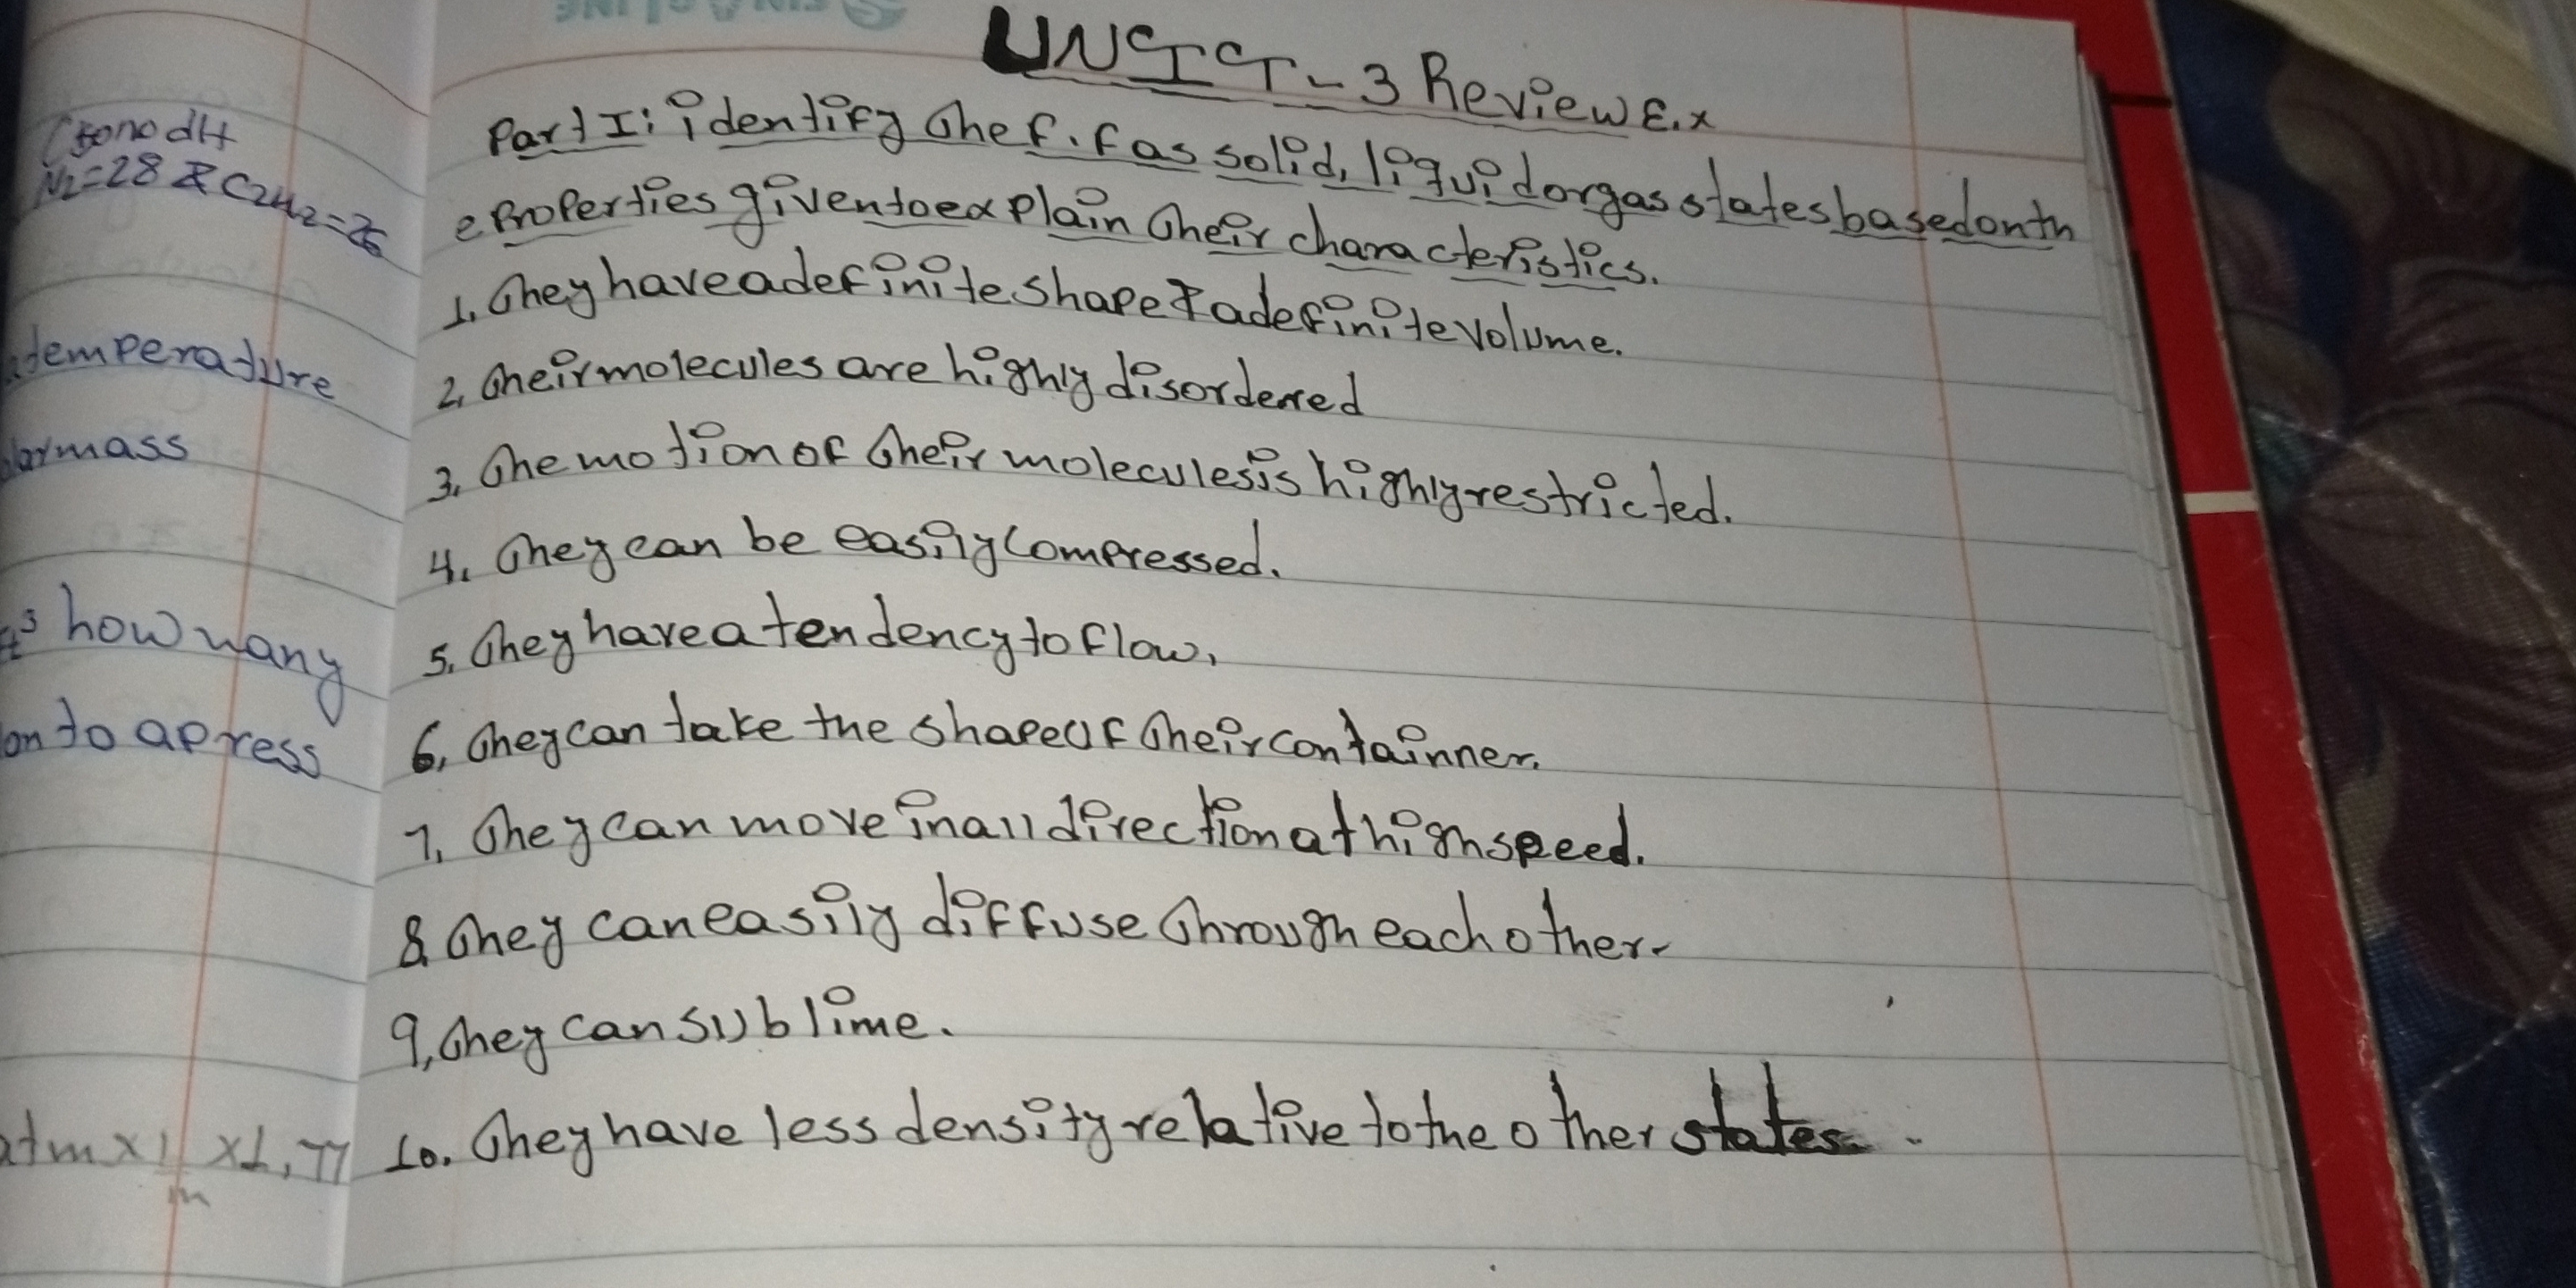 UNIT-3 Review Ex
Part I: identify the f.f as solid, liquid or gas states based on th
e properties given to explain their characteristics.
1. They have a definite shape & a definite volume.
2. Their molecules are highly disordered
3. The motion of their molecules is highly restricted.
4. They can be easily compressed.
5. They have a tendency to flow.
6. They can take the shape of their containner.
7. They can move in all direction at high speed.
8. They can easily diffuse through each other.
9. They can sublime.
10. They have less density relative to the other states.
N2=28 & C2H2=26
temperature
mass
how many
on to a press
atm x 1 x 1,
m